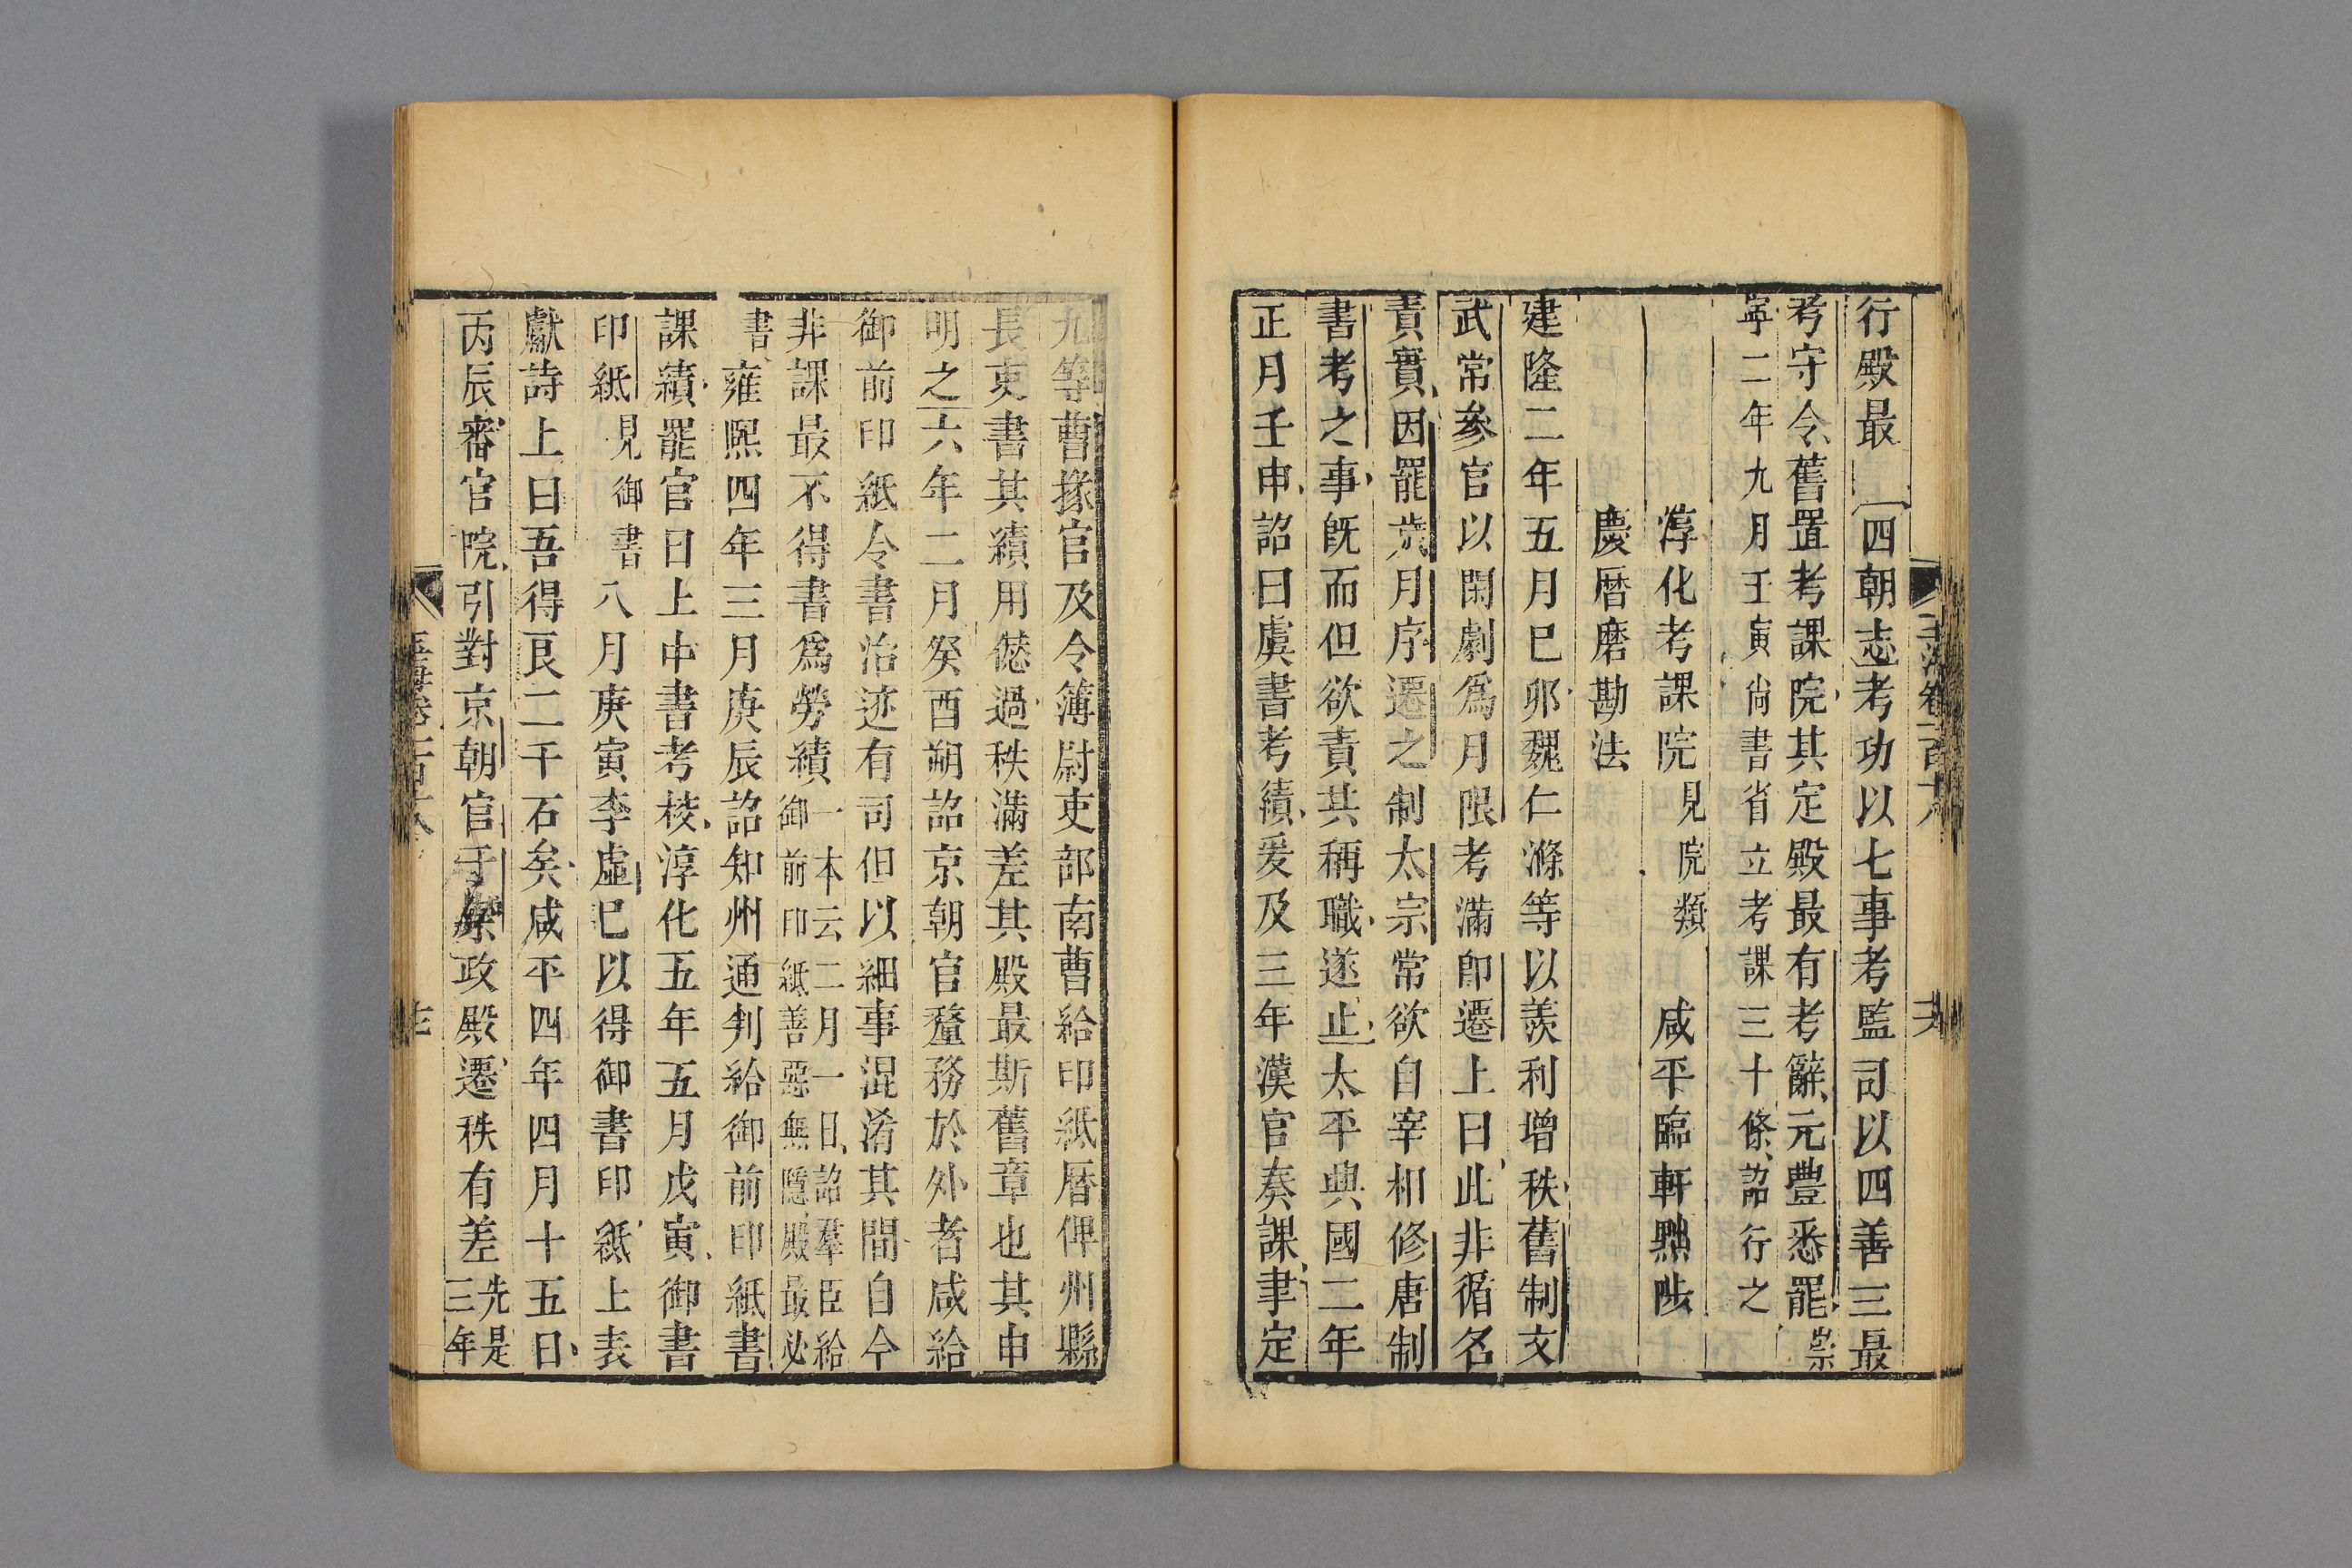 行殿最四朝志考功以七事考監司以四善三最
考守令舊置考課院其定殿最有考辭元豐悉罷崇
寧二年九月壬寅尚書省立考課三十條詔行之
淳化考課院見院類 咸平臨軒黜陟
慶曆磨勘法
建隆二年五月巳卯魏仁滌等以羨利增秩舊制文
武常參官以閑劇爲月限考滿即遷上曰此非循名
責實因罷歲月序遷之制太宗常欲自宰相修唐制
書考之事旣而但欲責其稱職遂止太平典國二年
正月壬申詔曰虞書考績爰及三年漢官奏課聿定
九等曹掾官及令簿尉吏部南曹給印紙曆俾州縣
長吏書其績用愆過秩滿差其殿最斯舊章也其申
明之六年二月癸酉朔詔京朝官釐務於外者咸給
御前印紙令書治迹有司但以細事混淆其間自今
非課最不得書爲勞績一本云二月一日詔羣臣給
御前印紙善惡無隱殿最必
書雍熙四年三月庚辰詔知州通判給御前印紙書
課績罷官日上中書考校淳化五年五月戊寅御書
印紙見御書八月庚寅李虛巳以得御書印紙上表
獻詩上曰吾得良二千石矣咸平四年四月十五日
丙辰審官院引對京朝官于崇政殿遷秩有差先是
三年